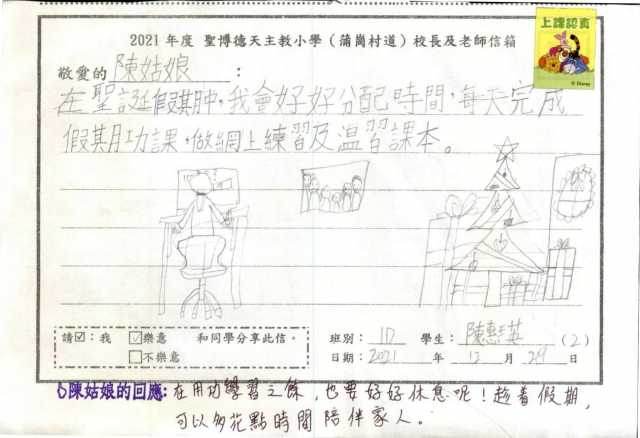 2021 年度 聖博德天主教小學（蒲崗村道）校長及老師信箱
上課認真
© Disney
敬愛的 陳姑娘：
在聖誕假期中，我會好好分配時間，每天完成
假期功課，做網上練習及温習課本。
請☑：我 ☑樂意 和同學分享此信。
□不樂意
班別： 1D 學生： 陳惠珽英 (2)
日期： 2021 年 12 月 29 日
陳姑娘的回應：在用功學習之餘，也要好好休息呢！趁着假期，
可以多花點時間陪伴家人。